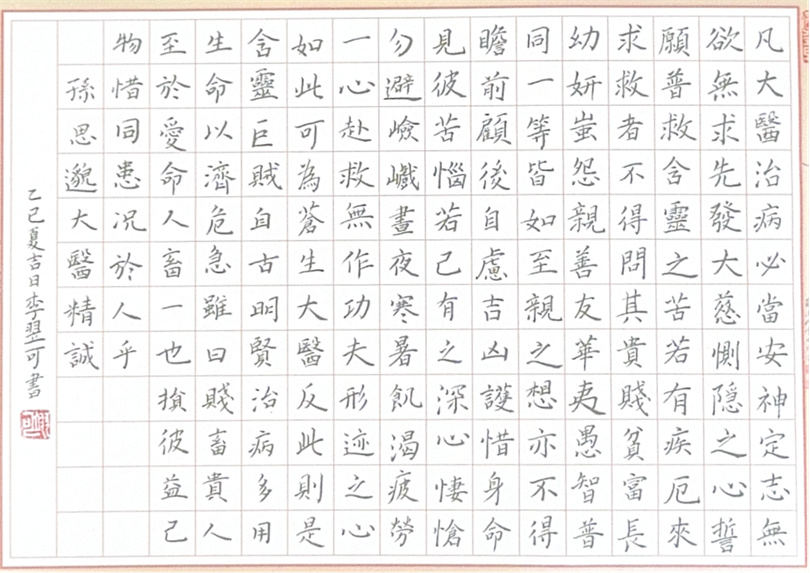 凡大醫治病必當安神定志無
欲無求先發大慈惻隱之心誓
願普救含靈之苦若有疾厄來
求救者不得問其貴賤貧富長
幼妍蚩怨親善友華夷愚智普
同一等皆如至親之想亦不得
瞻前顧後自慮吉凶護惜身命
見彼苦惱若己有之深心悽愴
勿避嶮巇晝夜寒暑飢渴疲勞
一心赴救無作功夫形迹之心
如此可為蒼生大醫反此則是
含靈巨賊自古明賢治病多用
生命以濟危急雖曰賤畜貴人
至於愛命人畜一也損彼益己
物惜同患況於人乎
孫思邈大醫精誠
乙巳夏吉日李翌可書